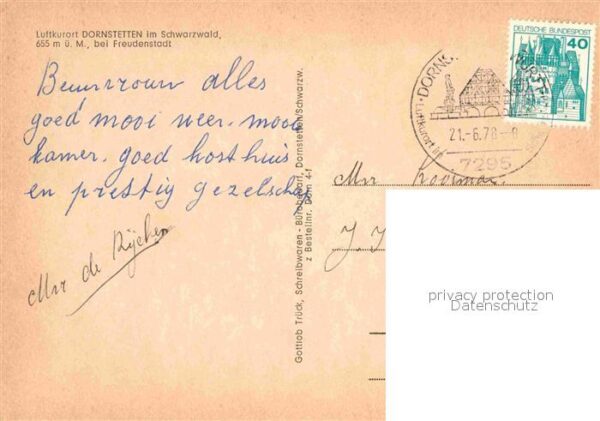 Luftkurort DORNSTETTEN im Schwarzwald,
655 m ü. M., bei Freudenstadt
alles
goed mooi weer. mooi
kamer. goed kosthuis
en prettig gezelschap
Mvr de Rijcker
Gottlob Trück, Schreibwaren - Bürobedarf, Dornstetten/Schwarzw.
z Bestellnr. Dorn 4-f
DEUTSCHE BUNDESPOST
40
Luftkurort
21.-6.78.-8
7295
Mvr Kooiman.
J. J
privacy protection
Datenschutz